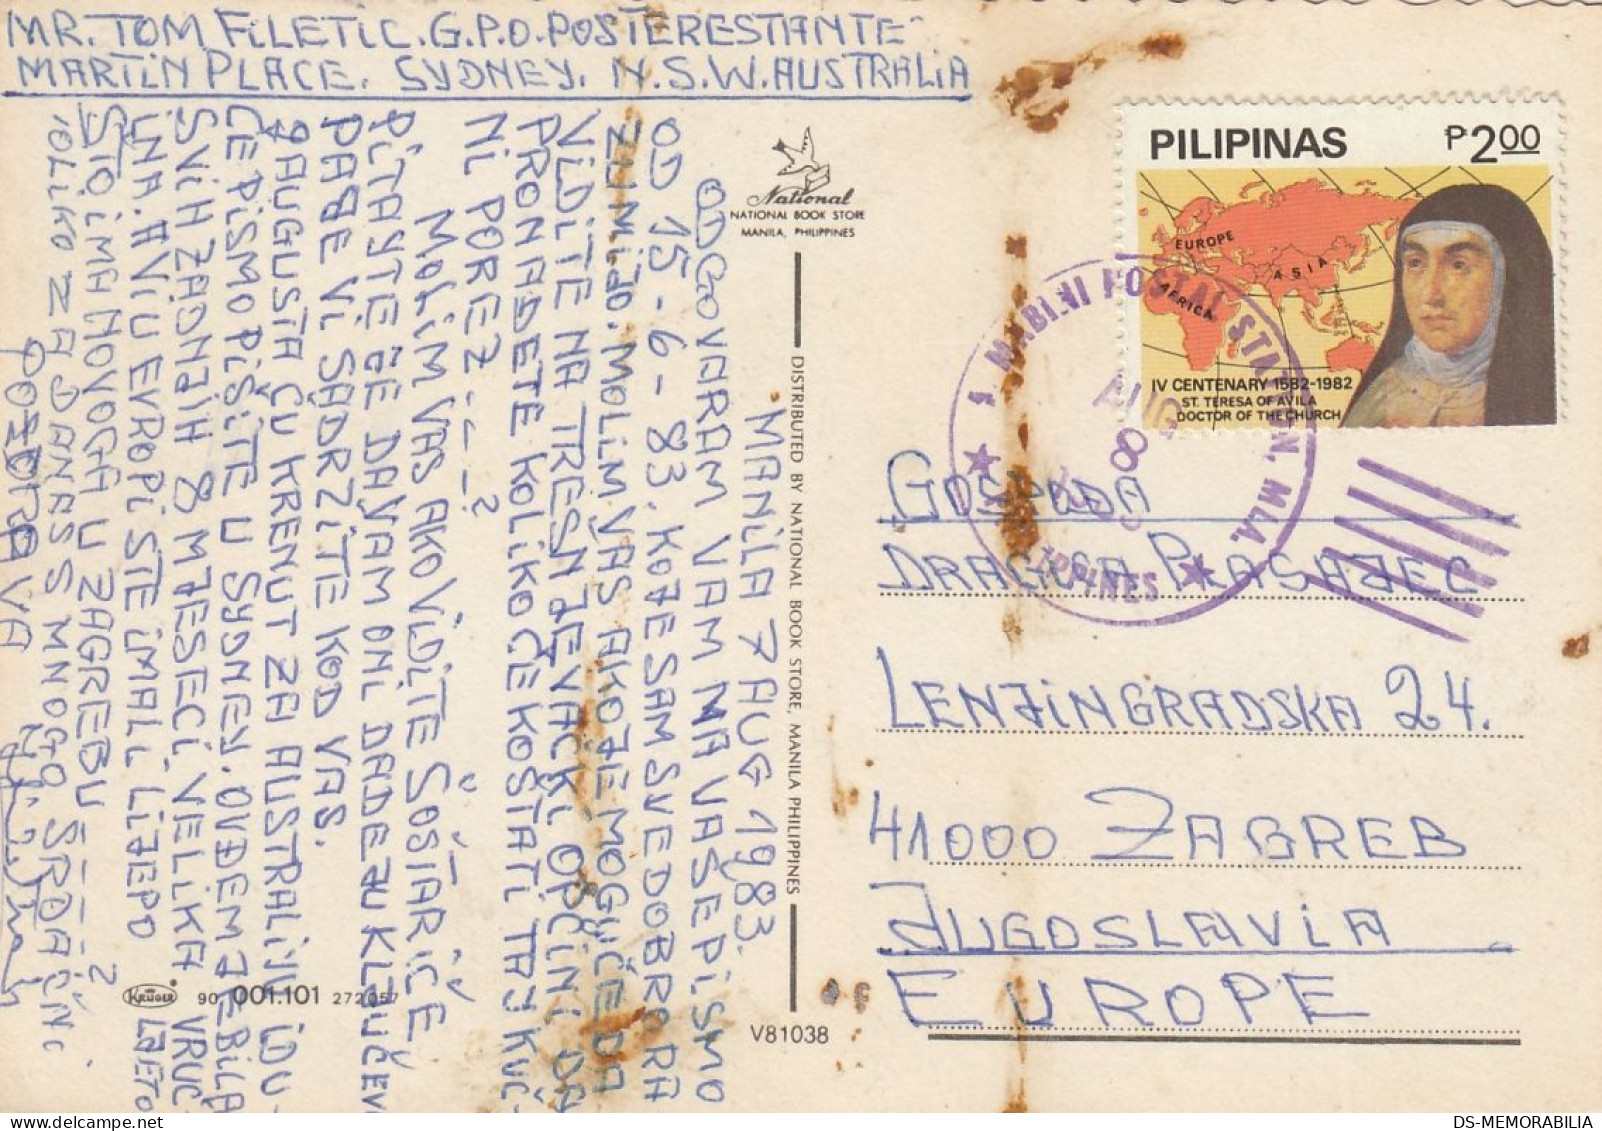 MR. TOM FILETIC. G.P.O. POSTERESTANTE
MARTIN PLACE. SYDNEY. N.S.W. AUSTRALIA
MANILA 7 AUG 1983.
ODGOVARAM VAM NA VAŠE PISMO
OD 15-6-83. KOJE SAM SVE DOBRO RA
ZUMIJO. MOLIM VAS AKO JE MOGUČE DA
VIDITE NA TREŠNJEVAČKI OPČINI DA
PRONADETE KOLIKO ČE KOŠTATI TAJ KUČ-
NI POREZ----?
MOLIM VAS AKO VIDITE ŠOŠTARIČE
PITAJTE ČE DAVAM ONI DADEJU KLJUČEV
PA GE VI SADRZITE KOD VAS.
9 AUGUSTA ČU KRENUT ZA AUSTRALIJU IDU-
ČE PISMO PIŠITE U SYDNEY. OVĐEM JE BILA
SVIH ZADNJIH 8 MJESECI VELIKA VRUČ-
INA. A VI U EVROPI STE IMALI LIJEPO LJETO
ŠTO IMA NOVOGA U ZAGREBU ----?
TOLIKO ZA DANAS S MNOGO SRDAČNI
POZDRAVA
National
NATIONAL BOOK STORE
MANILA, PHILIPPINES
DISTRIBUTED BY NATIONAL BOOK STORE, MANILA PHILIPPINES
KRÜGER 90 001.101 272057
V81038
PILIPINAS ₱2.00
EUROPE
ASIA
AFRICA
IV CENTENARY 1582-1982
ST. TERESA OF AVILA
DOCTOR OF THE CHURCH
A. MABINI POSTAL STATION, MLA.
AUG
GOSPODA
DRAGICA PLASAJEC
LENJINGRADSKA 24.
41000 ZAGREB
JUGOSLAVIA
EUROPE
DS-MEMORABILIA